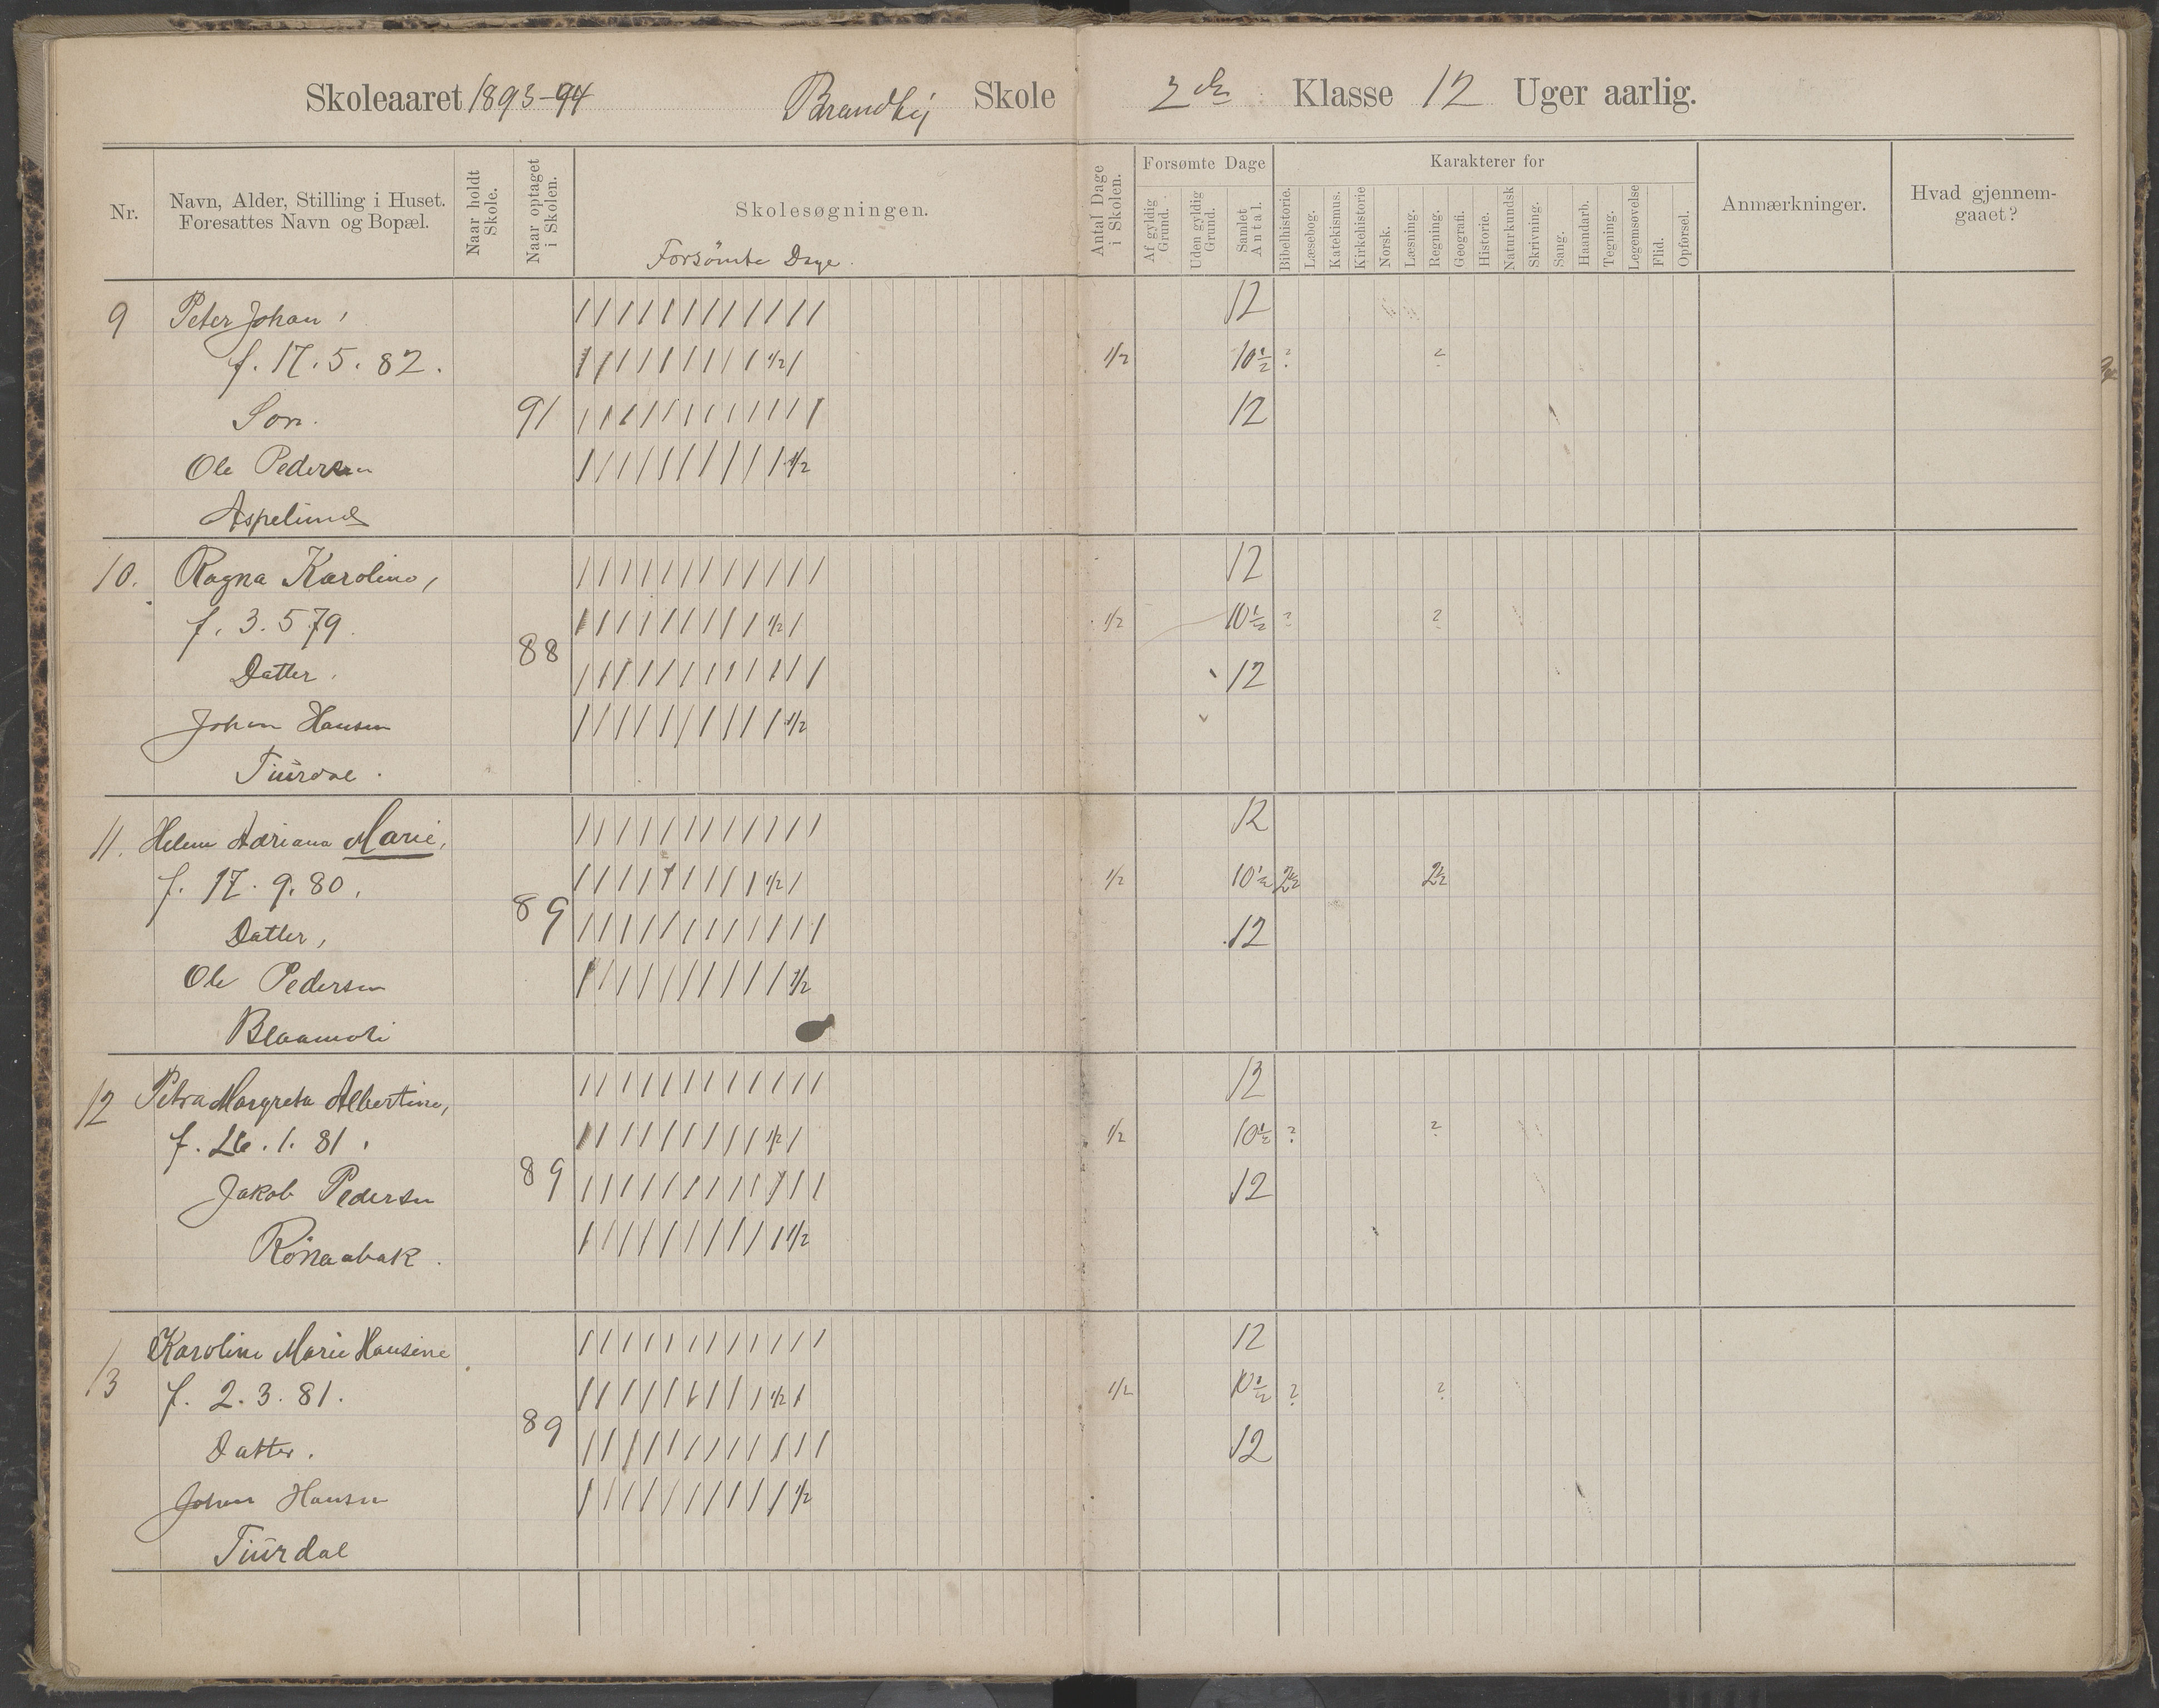 Skoleaaret 1893-94 Skole 2den Klasse 12 Uger aarlig.
Nr.
Navn, Alder, Stilling i Huset.
Foresattes Navn og Bopæl.
Naar holdt
Skole.
Naar optaget
i Skolen.
Skolesøgningen.
Forsømte Dage.
Antal Dage
i Skolen.
Forsømte Dage
Af gyldig
Grund.
Uden gyldig
Grund.
Samlet
Antal.
Karakterer for
Bibelhistorie.
Læsebog.
Katekismus.
Kirkehistorie
Norsk.
Læsning.
Regning.
Geografi.
Historie.
Naturkundsk
Skrivning.
Sang.
Haandarb.
Tegning.
Legemsøvelse
Flid.
Opførsel.
Anmærkninger.
Hvad gjennem-
gaaet?
9 Peter Johan, / / / / / / / / / / / / 12
f. 17.5.82. / / / / / / / / / 1/2 / 1/2 10 1/2 ? ?
Søn. 91 / / / / / / / / / / / / 12
Ole Pedersen / / / / / / / / / / 1/2
Aspelund
10. Ragna Karoline, / / / / / / / / / / / / 12
f. 3.5 79. / / / / / / / / / 1/2 / 1/2 10 1/2 ? ?
Datter. 88 / / / / / / / / / / / / 12
Johan Hansen / / / / / / / / / / 1/2
Tiurdal.
11. Helene Adriana Marie, / / / / / / / / / / / / 12
f. 17.9.80. / / / / / / / / / 1/2 / 1/2 10 1/2 2 1/2 2 1/2
Datter, 89 / / / / / / / / / / / / 12
Ole Pedersen / / / / / / / / / / 1/2
Blaamoli
12 Petra Margreta Albertine, / / / / / / / / / / / / 12
f. 26.1.81. / / / / / / / / / 1/2 / 1/2 10 1/2 ? ?
Jakob Pedersen 89 / / / / / / / / / / / / 12
/ / / / / / / / / / 1/2
13 Karoline Marie Hansine / / / / / / / / / / / / 12
f. 2.3.81. / / / / / / / / / 1/2 / 1/2 10 1/2 ? ?
Datter. 89 / / / / / / / / / / / / 12
Johan Hansen / / / / / / / / / / 1/2
Tiurdal